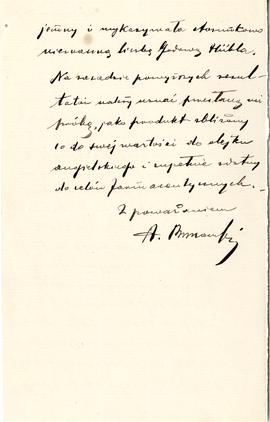 jemny i wykazywała stosunkowo
nieznaczną liczbę jodową Hübla.
Na zasadzie powyższych rezul-
tatów należy uznać przesłaną mi
próbkę, jako produkt zbliżony
co do swej wartości do olejku
angielskiego i zupełnie zdatny
do celów farmaceutycznych.
Z poważaniem
A.